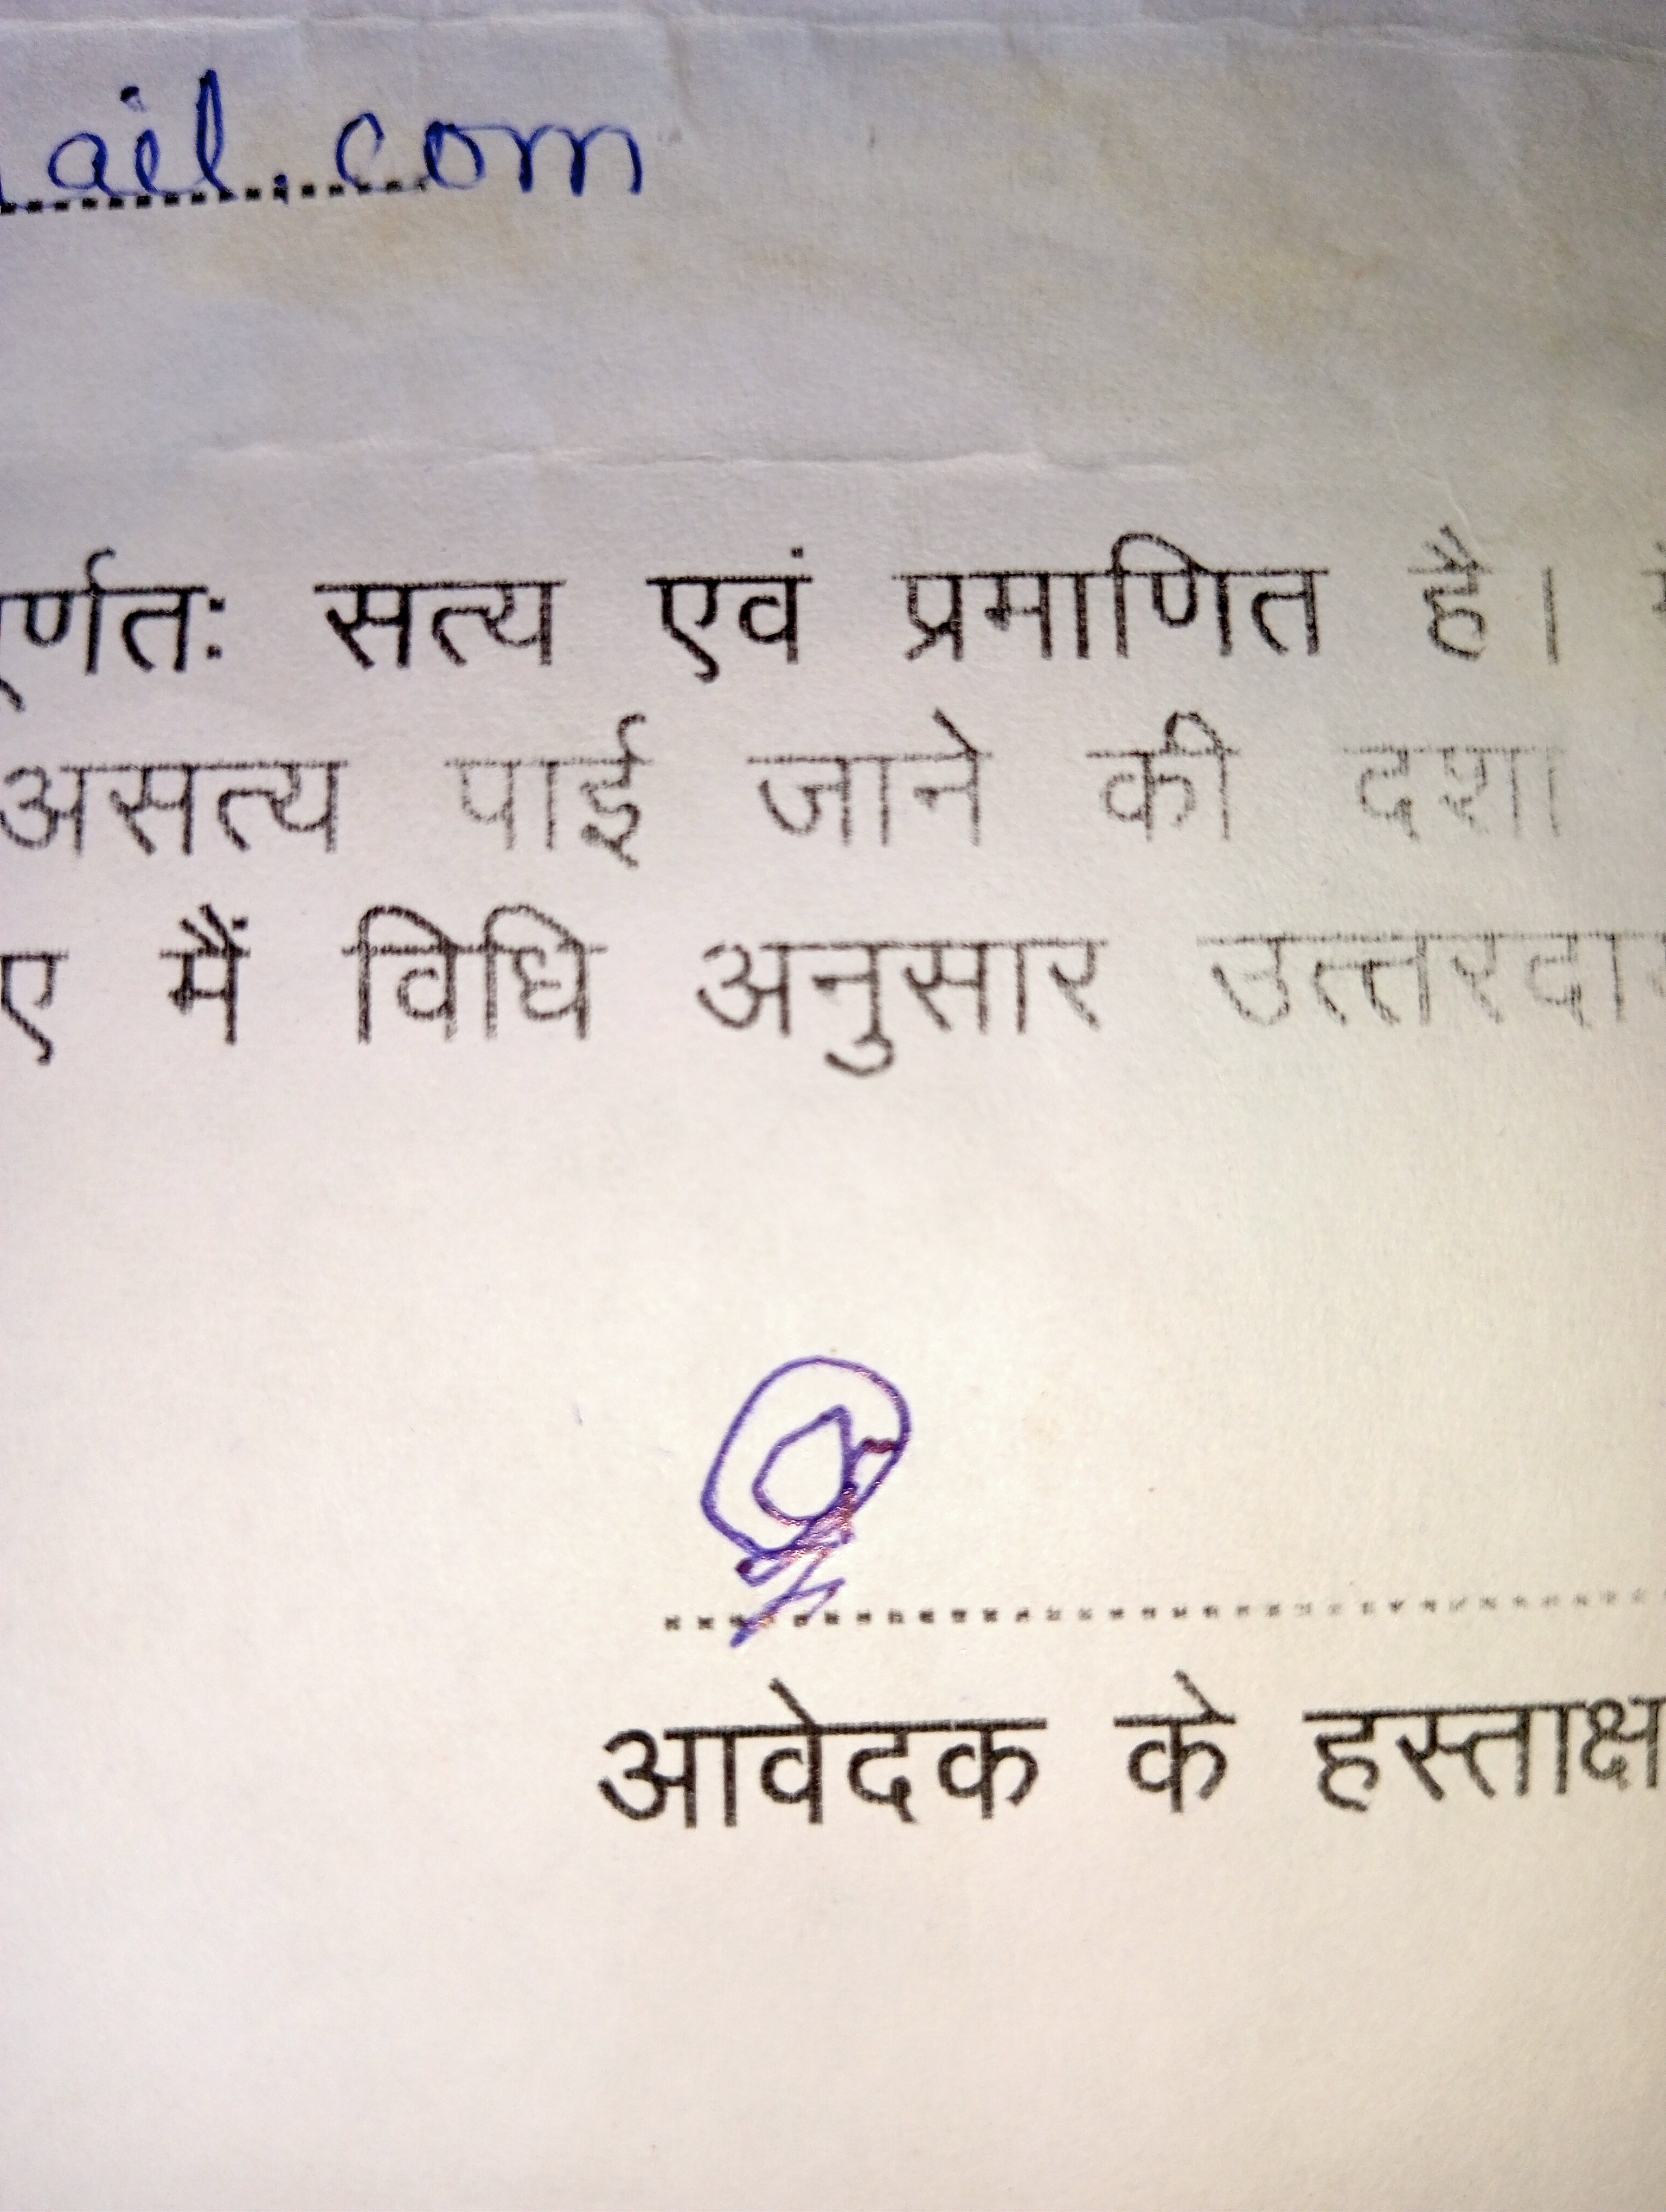 ail.com
र्णतः सत्य एवं प्रमाणित है।
असत्य पाई जाने की दशा
ए मैं विधि अनुसार उत्तरदा
आवेदक के हस्ताक्ष